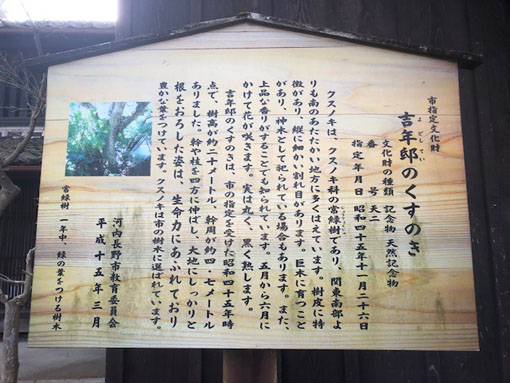 市指定文化財
吉年邸のくすのき
よどしてい
文化財の種類 記念物 天然記念物
番 号 天二
指定年月日 昭和四十五年十一月二十六日
クスノキは、クスノキ科の常緑樹であり、関東南部よ
じょうりょくじゅ
りも南のあたたかい地方に多くはえています。樹皮に特
徴があり、縦に細かい割れ目があります。巨木に育つこと
があり、神木として祀られている場合もあります。また、
上品な香りがすることでも知られています。五月から六月に
かけて花が咲きます。実は丸く、黒く熟します。
吉年邸のくすのきは、市の指定を受けた昭和四十五年時
点で、樹高が約二十メートル、幹周が約四・七メートル
ありました。幹や枝を四方に伸ばし、大地にしっかりと
根をおろした姿は、生命力にあふれており
豊かな葉をつけています。クスノキは市の樹木に選ばれています。
常緑樹 一年中、緑の葉をつける樹木
平成十五年三月
河内長野市教育委員会